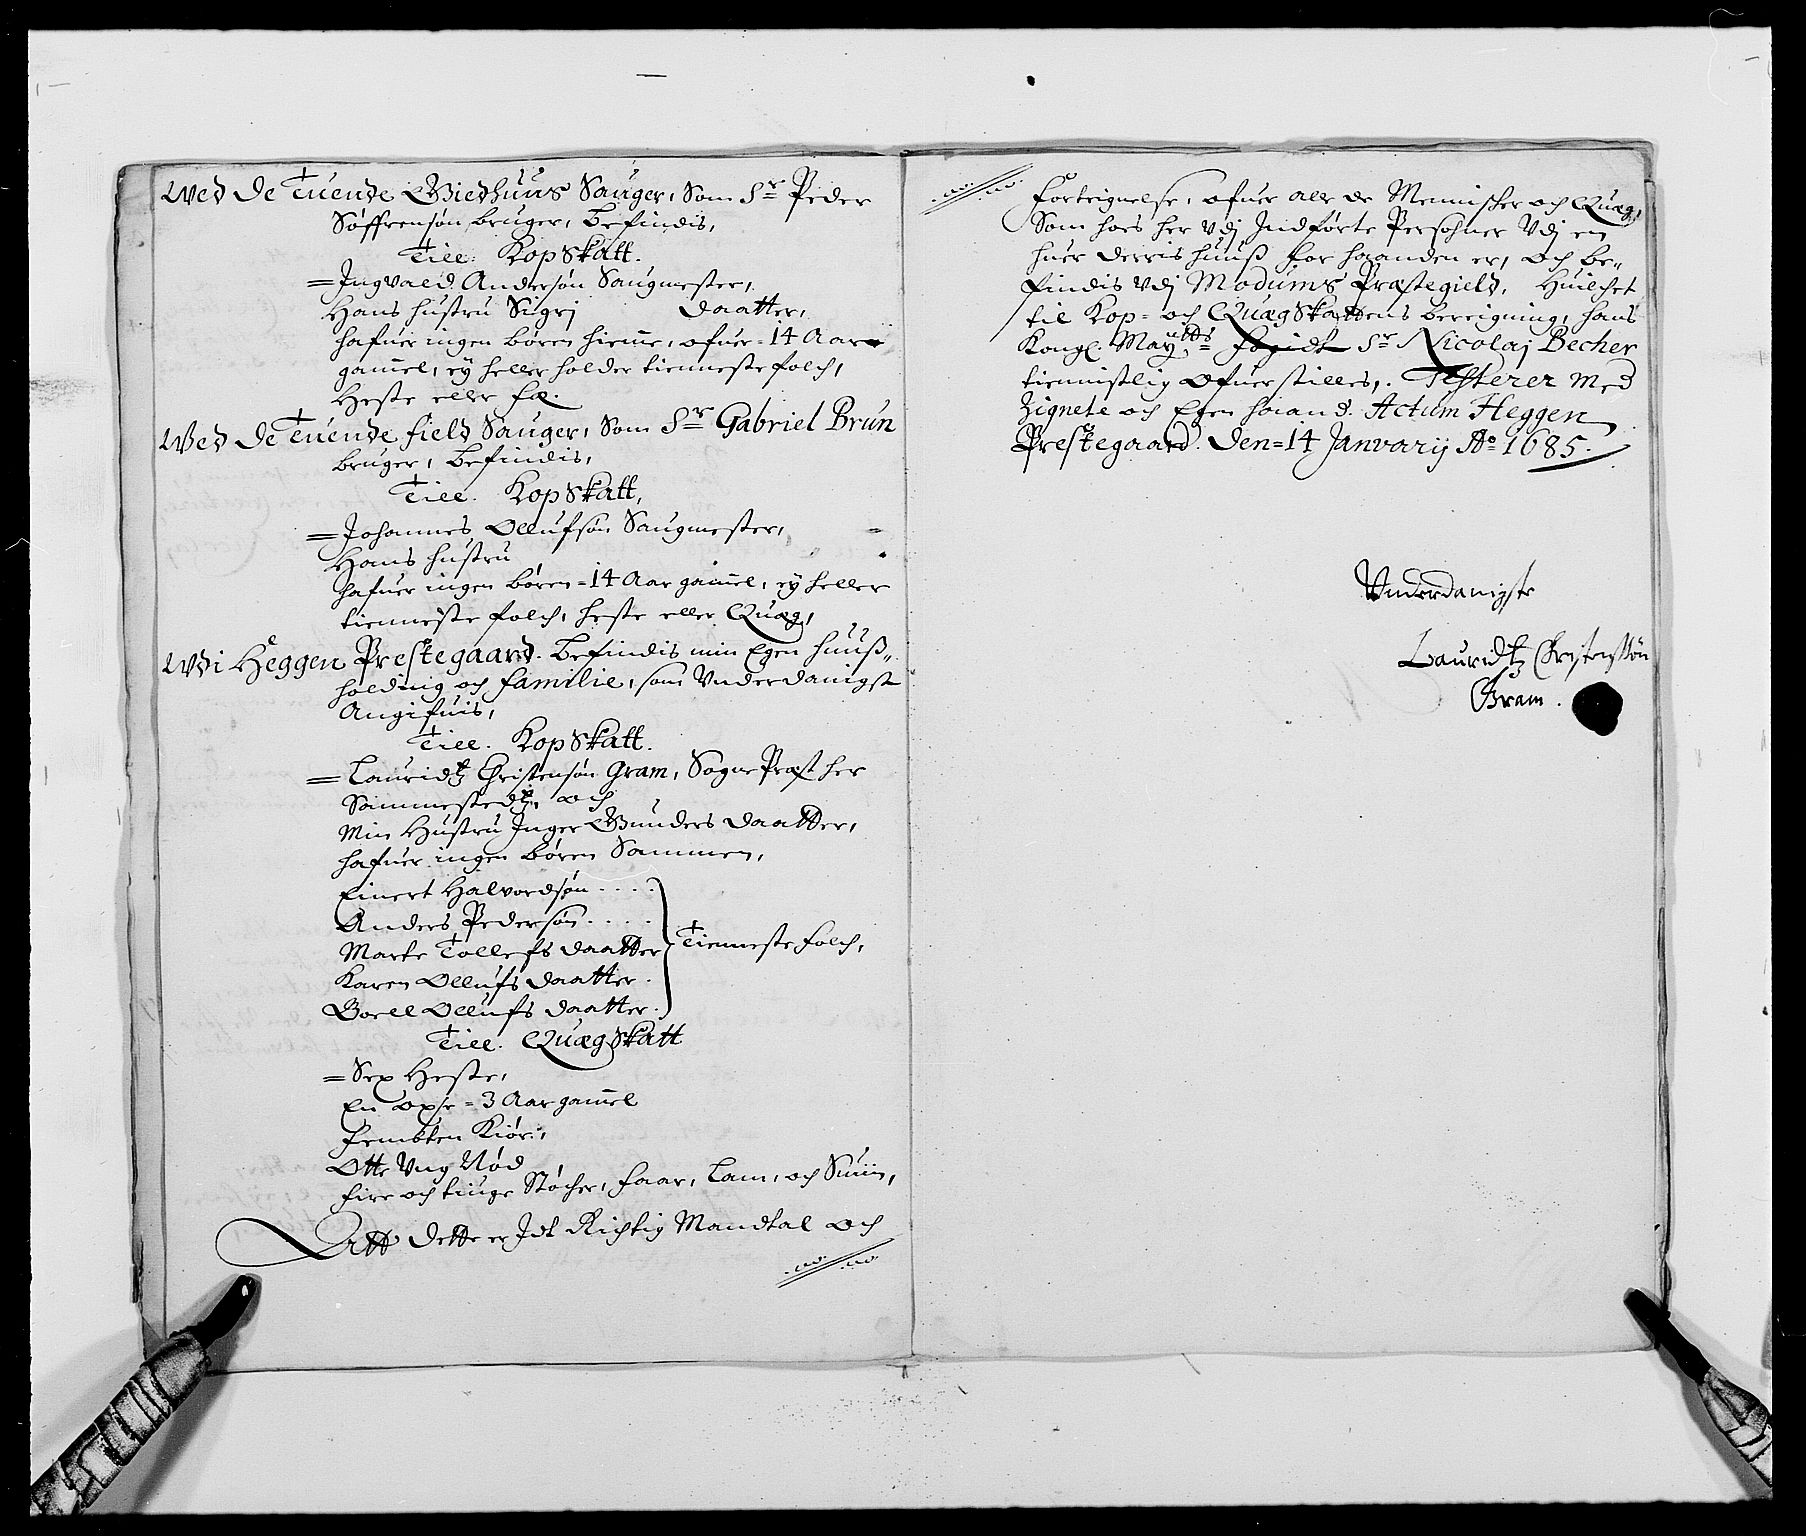 Wed De Tuende Giedhuus Sauger, Som Sr Peder
Søffrensøn bruger, befindis,
Till. KopSkatt.
= Ingvald Andersøn Saugmester,
Hans hustru Sigrj daatter,
hafuer ingen børen hieme, ofuer = 14 Aar
gamel, ey heller holder tienneste folch,
Heste eller fæ.
Wed De Tuende field Sauger, Som Sr Gabriel Brun
bruger, befindis,
Till. KopSkatt,
= Johannes Ollufsøn Saugmester,
Hans hustru
hafuer ingen børen = 14 Aar gamel, ey heller
tienneste folch, heste eller Quæg,
Wdi Heggen Prestegaard. befindis min Egen huuß„
holdning och familie, som Vnderdanigst
Angifuis,
Till. KopSkatt.
= Lauridtz Christensøn Gram, Sogne Præst her
Sammestedtz, och
Min Hustru Inger Gunders daatter,
hafuer ingen børen Sammen,
Einert Halvordsøn . . . .
Anders Pedersøn . . . .
Marte Tollefs daatter Tienneste folch,
Karen Ollufs daatter .
Boell Ollufs daatter .
Till. QuægSkatt
= Sex Heste,
En oxe = 3 Aar gamel
fembten Kiør,
Otte Vng Nød
fire och tiuge Støcher, faar, Lam, och Suiin,
Att dette er Idt Richtig Mandtal och
forteignelse, ofuer alle de Mennisker och Quæg,
Som hoes her vdj Indførte Persohner Vdj en
huer derris huuß for haanden er, och be„
findis vdj Modums Præstegield, Huilchet
til Kop = och QuægSkattens bereigning, hans
Kongl. Maytts fogidt Sr Nicolaj Becher
tiennistlig ofuerstilles,. Testerer med
Zignete och Egen haand. Actum Heggen
Prestegaard. Den = 14 Janvarij Ao 1685.
Vnderdanigste
Lauridtz Christenssøn
Gram.